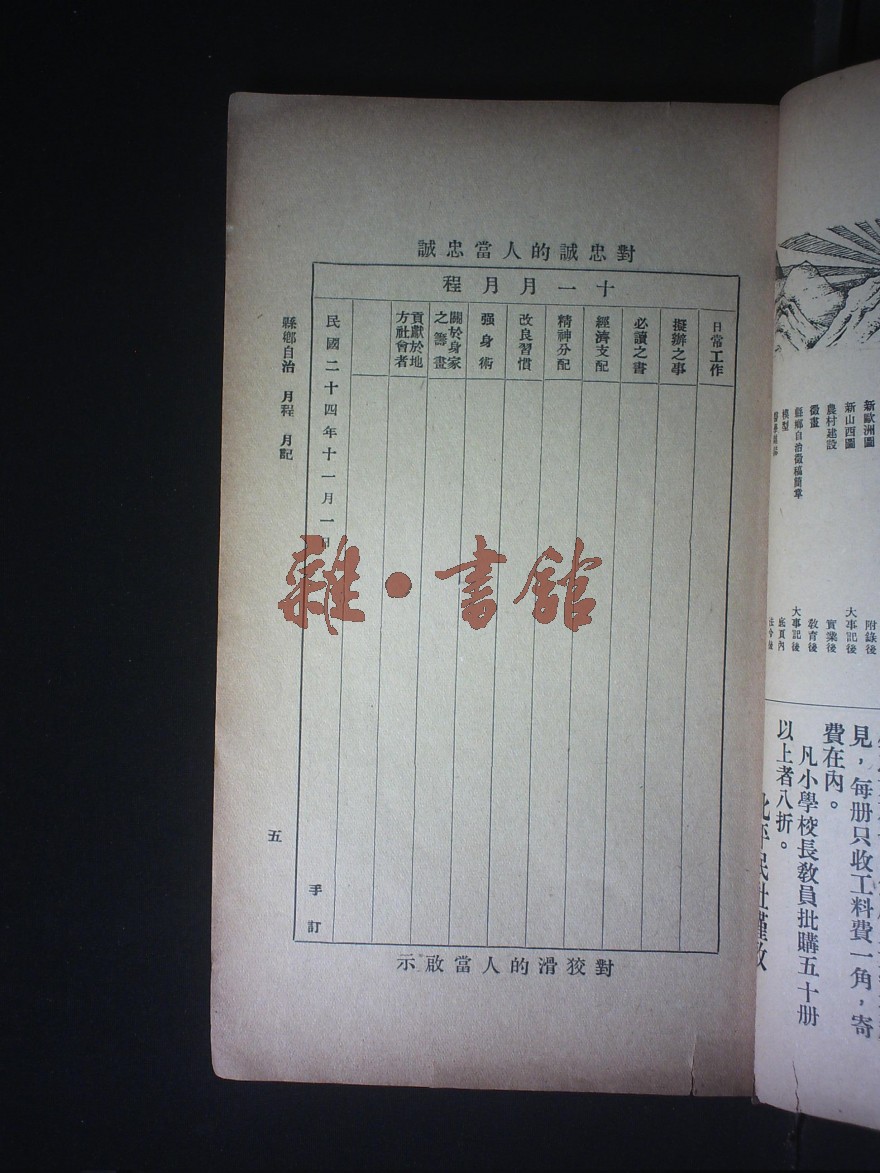 對忠誠的人當忠誠
十一月月程
日常工作
擬辦之事
必讀之書
經濟支配
精神分配
改良習慣
强身術
關於身家之籌畫
貢獻於地方社會者
民國二十四年十一月一日
手訂
對狡滑的人當啟示
縣鄉自治 月程 月記
五
雜·書館
新歐洲圖 附錄後
新山西圖 大事記後
農村建設 實業後
徵畫 教育後
縣鄉自治徵稿簡章 大事記後
模型 底頁內
見,每册只收工料費一角,寄
費在內。
凡小學校長敎員批購五十册
以上者八折。